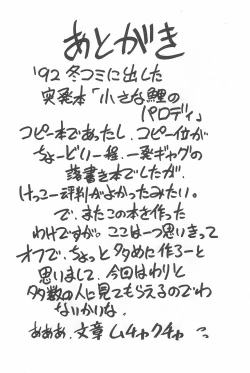 あとがき
'92冬コミに出した
突発本「小さな鯉の
パロディ」
コピー本であったし、コピー位が
ちょーどいー程、一発ギャグの
落書き本でしたが、
けっこー評判がよかったみたい。
で、またこの本を作った
わけですが、ここは一つ思いきって
オフで、ちょっと多めに作ろーと
思いまして、今回はわりと
多数の人に見てもらえるのでわ
ないかいな。
あああ、文章ムチャクチャ